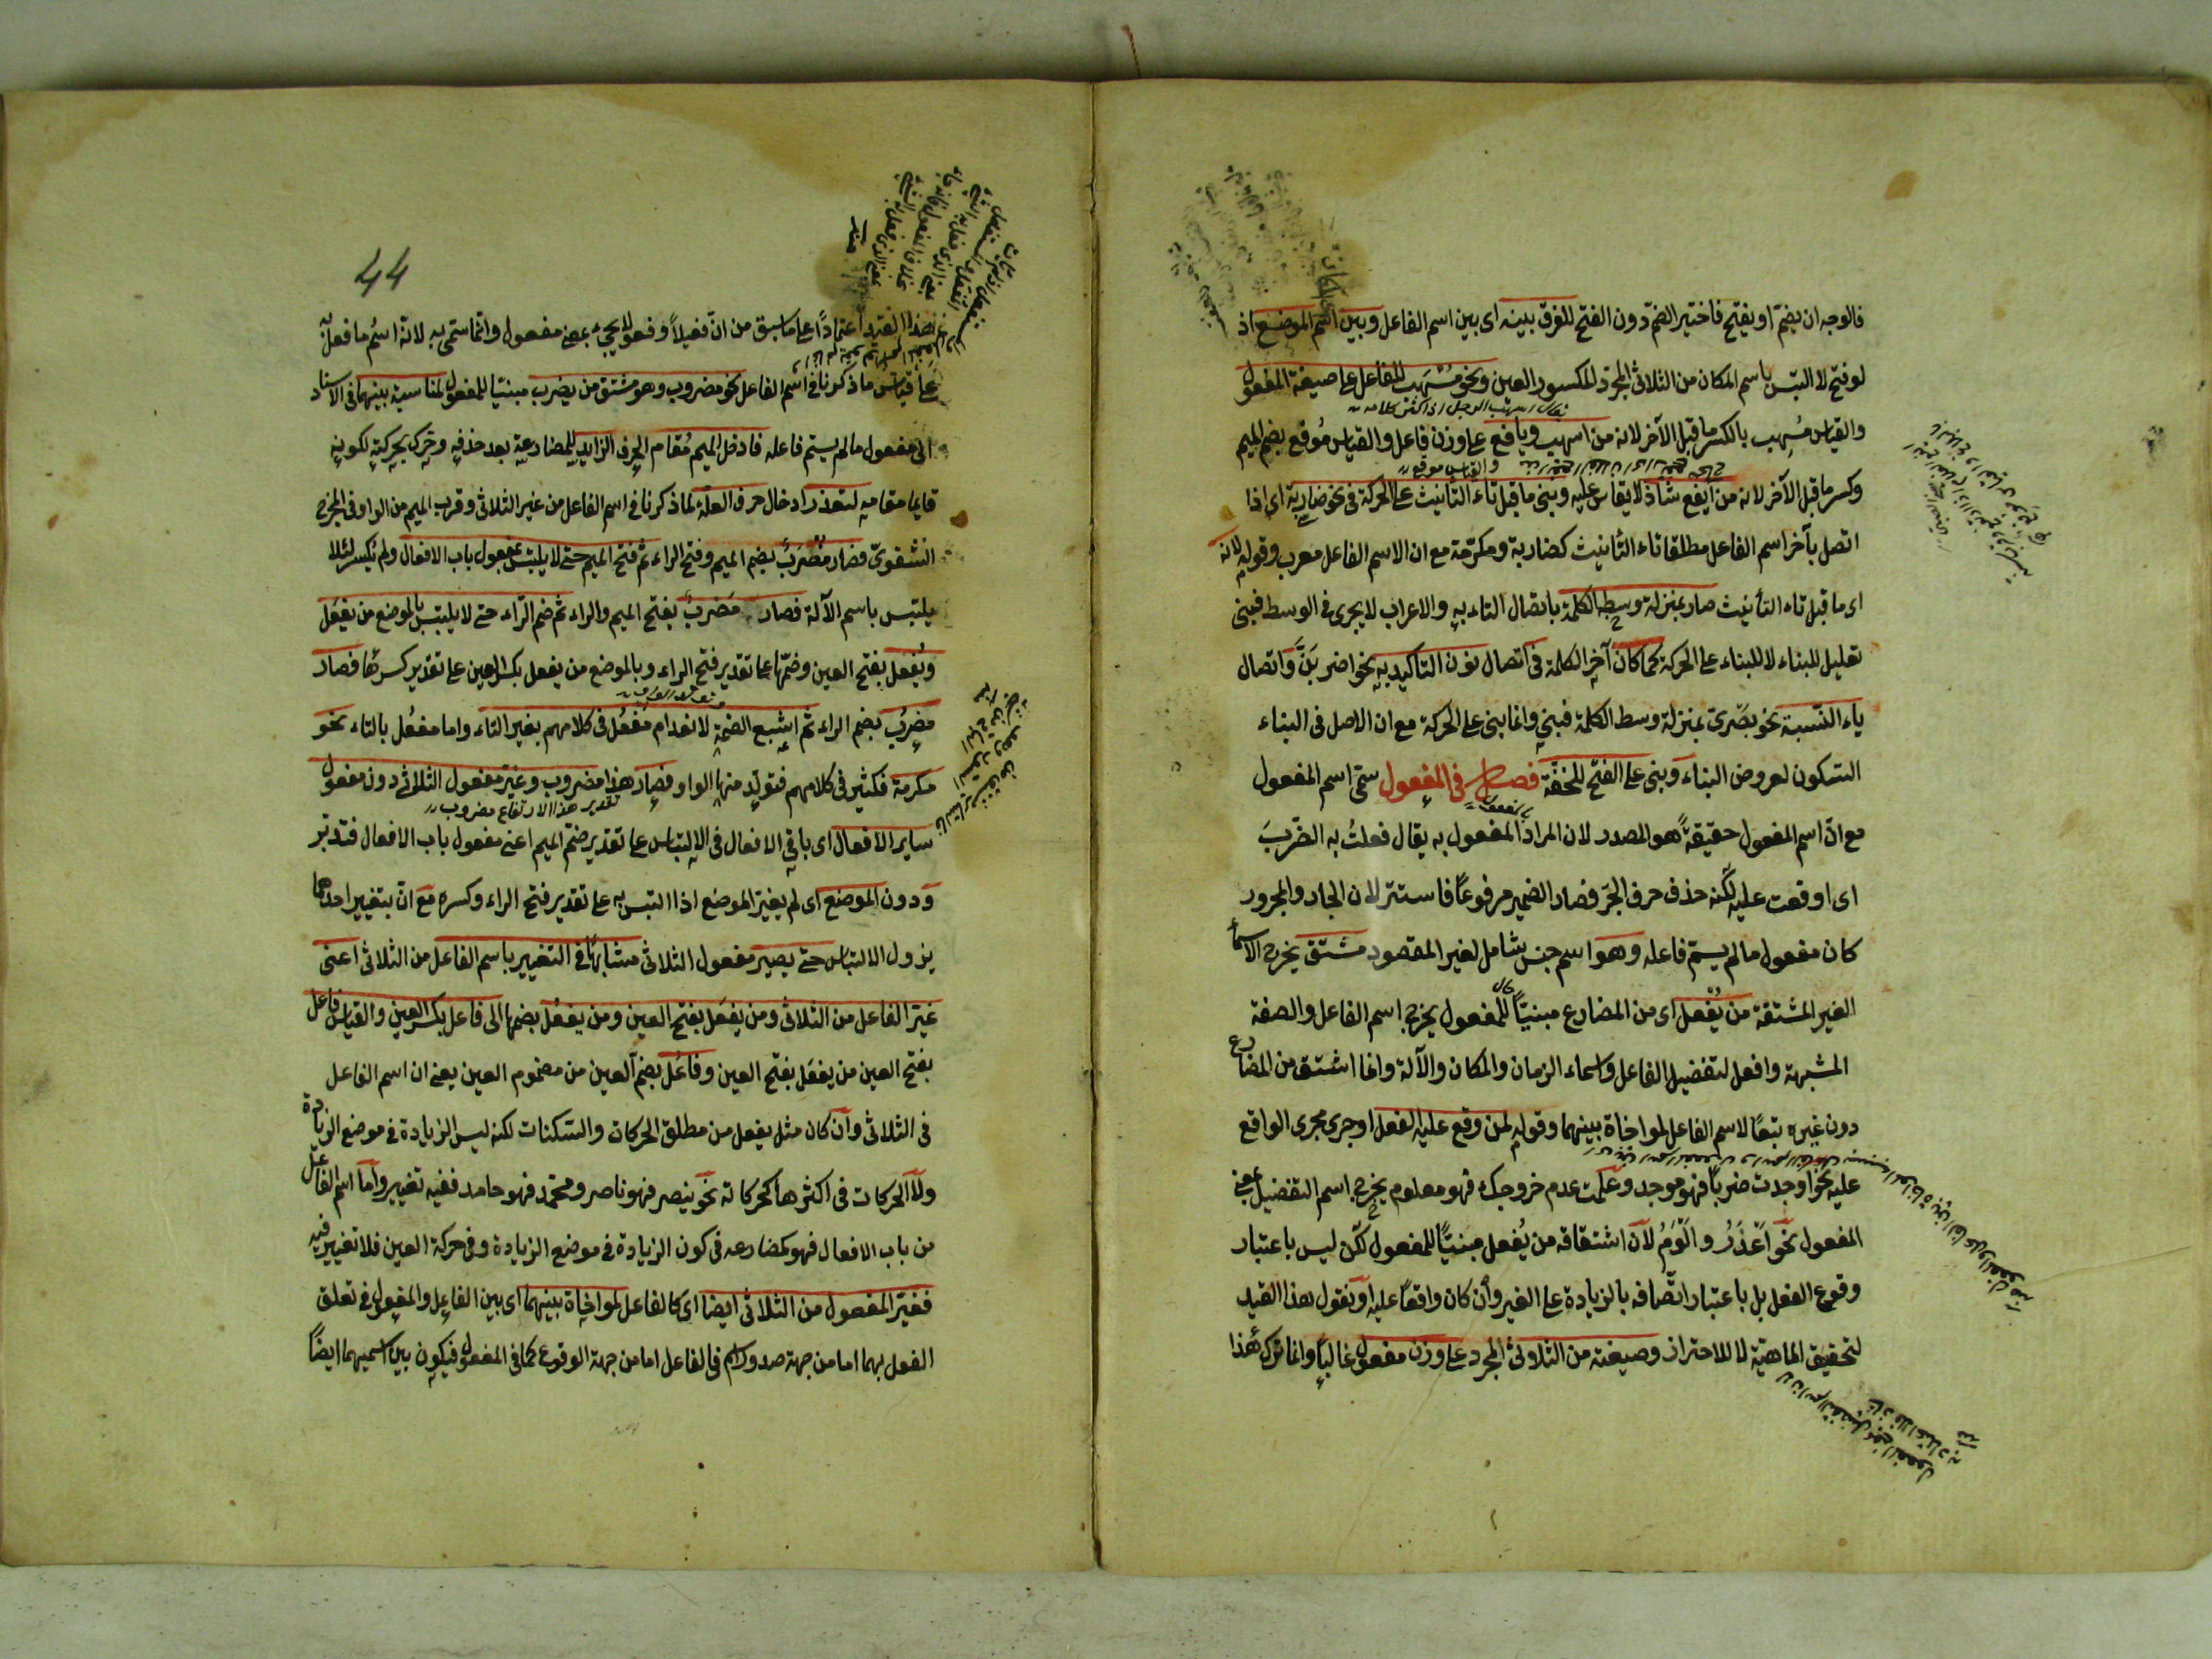 فالوجه ان يضمّ او يفتح فاختير الضمّ دون الفتح للفرق بينه اى بين اسم الفاعل وبين اسم الموضع اذ
لو فتح لا التبس باسم المكان من الثلاثى المجرّد المكسور العين ونحو مُسْهَب للفاعل على صيغة المفعول
يقال اسهب الرجل اذا اكثر كلامه
والقياس مُسهِب بالكسر ما قبل الآخر لانه من اسهب ويافع على وزن فاعل والقياس مُوقع بضم الميم
وكسر ما قبل الآخر لانه من ايفع شاذّ لا يقاس عليه وبنى ما قبل تاء التأنيث على الحركة فى نحو ضاربة اى اذا
اتصل بآخر اسم الفاعل مطلقا تاء التأنيث كضاربة ومكرّمة مع ان الاسم الفاعل معرب وقوله لانه
اى ما قبل تاء التأنيث صار بمنزلة وسط الكلمة باتصال التاء به والاعراب لا يجرى فى الوسط فبنى
تعليل للبناء لا للبناء على الحركة كما كان آخر الكلمة فى اتصال نون التأكيد به نحو اضربَنَّ واتصال
ياء النّسبة نحو بصَرىّ بمنزلة وسط الكلمة فبنى وانما بنى على الحركة مع ان الاصل فى البناء
السّكون لعروض البناء وبنى على الفتح للخفّة فصل فى المفعول سمّى اسم المفعول
مع انّ اسم المفعول حقيقةً هو المصدر لان المراد المفعول به يقال فعلتُ به الضّربَ
اى اوقعت عليه لكنه حذف حرف الجَر فصار الضمير مرفوعًا فاستتر لان الجار والمجرور
كان مفعول ما لم يسمّ فاعله وهو اسم جنس شامل لغير المقصود مشتق يخرج الاسماء
الغير المشتقة من يُفْعل اى من المضارع مبنيّاً للمفعول يخرج اسم الفاعل والصفة
المشبهة وافعل لتفضيل الفاعل واسماء الزمان والمكان والآلة وانما اشتق من المضارع
دون غيره تبعًا لاسم الفاعل لمواخاة بينهما وقوله لمن وقع عليه الفعل او جرى مجرى الواقع
عليه نحو اوجدت ضربًا فهو موجد وعلمت عدم خروجك فهو معلوم يخرج اسم التفضيل بمعنى
المفعول نحو اَعْذَرُ والْوَمُ لانّ اشتقاقه من يُفعل مبنيّاً للمفعول لكن ليس باعتبار
وقوع الفعل بل باعتبار اتّصافه بالزيادة على الغير وان كان واقعًا عليه او نقول هذا القيد
لتحقيق الماهية لا للاحتراز وصيغته من الثلاثى المجرد على وزن مفعول غالباً وانما ترك هذا
44
القيد اعتمادًا على ما سبق من انّ فعيلاً وفعولا يجىء بمعنى مفعول وانما سمّى به لانه اسمُ ما فعل به
على قياس ما ذكرنا فى اسم الفاعل نحو مضروب وهو مشتق من يضرب مبنيّا للمفعول لمناسبة بينهما فى الاسناد
الى مفعول ما لم يسمّ فاعله فادخل الميم مُقام الحرف الزايد للمضارعة بعد حذفه وحرّك بحركته لكونه
قايما مقامه لتعذر ادخال حرف العلّة لما ذكرنا فى اسم الفاعل من غير الثلاثى وقرب الميم من الواو فى المخرج
الشفوىّ فصار مُضْرَبٌ بضم الميم وفتح الراء ثم فتح الميم حتى لا يلتبس بمفعول باب الافعال ولم يكسر لئلا
يلتبس باسم الآلة فصار مَضرَبٌ بفتح الميم والراء ثم ضم الرّاء حتى لا يلتبس بالموضع من يفعَل
ويَفعُل بفتح العين وضمّها على تقدير فتح الراء وبالموضع من يفعل بكسر العين على تقدير كسرها فصار
مضرُب بضم الراء ثم اشبع الضمة لانعدام مَفعُل فى كلامهم بغير التاء واما مفعُل بالتاء نحو
مكرمة فكثير فى كلامهم فتولّد منها الواو فصار هذا مضروب وغيّر مفعول الثلاثى دون مفعول
ساير الافعال اى باقى الافعال فى الالتباس على تقدير ضم الميم اعنى مفعول باب الافعال فتدبّر
ودون الموضع اى لم يغيّر الموضع اذا التبس به على تقدير فتح الراء وكسره مع انّ بتغيير احدهما
يزول الالتباس حتى يصير مفعول الثلاثى مشابهًا فى التغيير باسم الفاعل من الثلاثى اعنى
غيّر الفاعل من الثلاثى ومن يفعَل بفتح العين ومن يفعُل بضمها الى فاعل بكسر العين والقياس فاعَل
بفتح العين من يفعَل بفتح العين وفاعُل بضم العين من مضموم العين يعنى ان اسم الفاعل
فى الثلاثى وان كان مثل يفعل من مطلق الحركات والسّكنات لكنه ليس الزيادة فى موضع الزيادة
ولا الحركات فى اكثرها كحركاته نحو ينصر فهو ناصر ويحمد فهو حامد ففيه تغيير واما اسم الفاعل
من باب الافعال فهو كمضارعه فى كون الزيادة فى موضع الزيادة وفى حركة العين فلا تغيير فيه
فغيّر المفعول من الثلاثى ايضا اى كالفاعل لمواخاة بينهما اى بين الفاعل والمفعول فى تعلق
الفعل بهما اما من جهة صدور كما فى الفاعل اما من جهة الوقوع كما فى المفعول فيكون بين اسميهما ايضًا